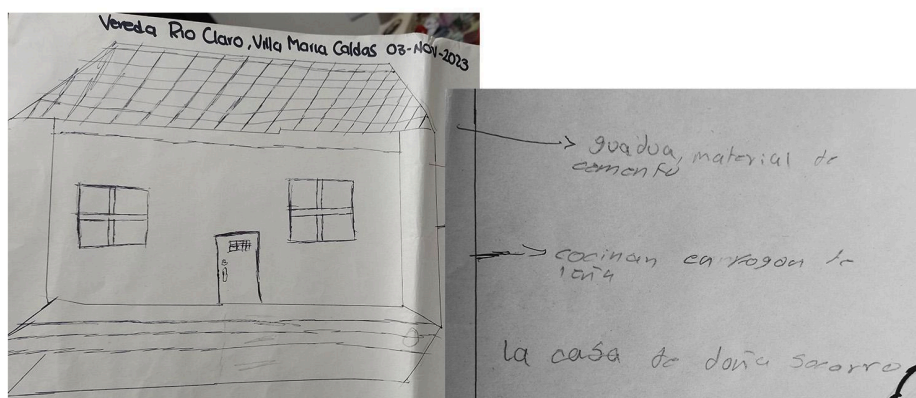 Vereda Rio Claro, Villa Maria Caldas 03-NOV-2023
guadua, material de
cemento
cocinan en fogon de
leña
la casa de doña socorro